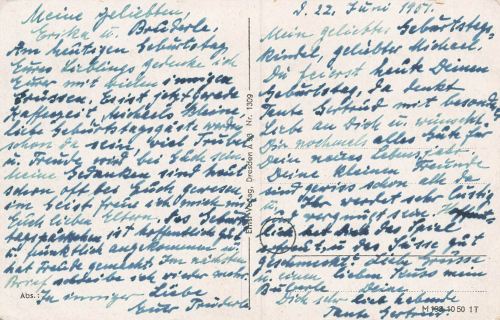 Meine Geliebten,
Erika u. Bruderle,
Am heutigen Geburtstag
Eures Lieblings gedenke ich
Eurer mit vielen innigen
Grüssen. Es ist jetzt gerade
Kaffeezeit, Michaels kleine
liebe Geburtstagsgäste werden
schon da sein, viel Trubel
u. Freude wird bei Euch sein,
meine Gedanken sind heut
schon oft bei Euch gewesen
im Geist freue ich mich mit
Euch lieben Eltern. Das Geburts
tagspäckchen ist hoffentlich gut
u. pünktlich angekommen u.
hat Freude gemacht. Im nächsten
Brief schreibe ich wieder mehr.
In inniger Liebe
Eure Truderle
Abs.:
Verlag, Dresden A Nr. 1309
d. 22. Juni 1951.
Mein geliebtes Geburtstags-
kindel, geliebter Michael.
Du feierst heute Deinen
Geburtstag, da denkt
Tante Gertrud mit besondrer
Liebe an Dich u. wünscht
Dir nochmals alles Gute für
Dein neues Lebensjahr.
Deine kleinen Freunde
sind gewiss schon alle da
u. Ihr werdet sehr lustig
u. vergnügt sein. Hoffent-
lich hat Dich das Spiel
erfreut, u. das Süsse gut
geschmeckt. Liebe Grüsse
u. einen lieben Kuss mein
Büberle Deine
Dich sehr lieb habende
Tante Gertrud.
M 132 10 50 1T